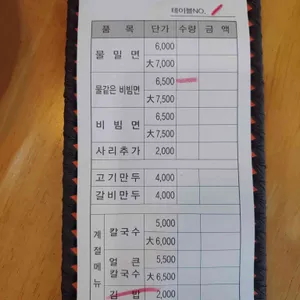 테이블NO.
품 목 단가 수량 금 액
물 밀 면 6,000
大 7,000
물같은 비빔면 6,500
大 7,500
비 빔 면 6,500
大 7,500
사 리 추 가 2,000
고 기 만 두 4,000
갈 비 만 두 4,000
계절메뉴
칼 국 수 5,000
大 6,000
얼 큰 칼 국 수 5,500
大 6,500
김 밥 2,000